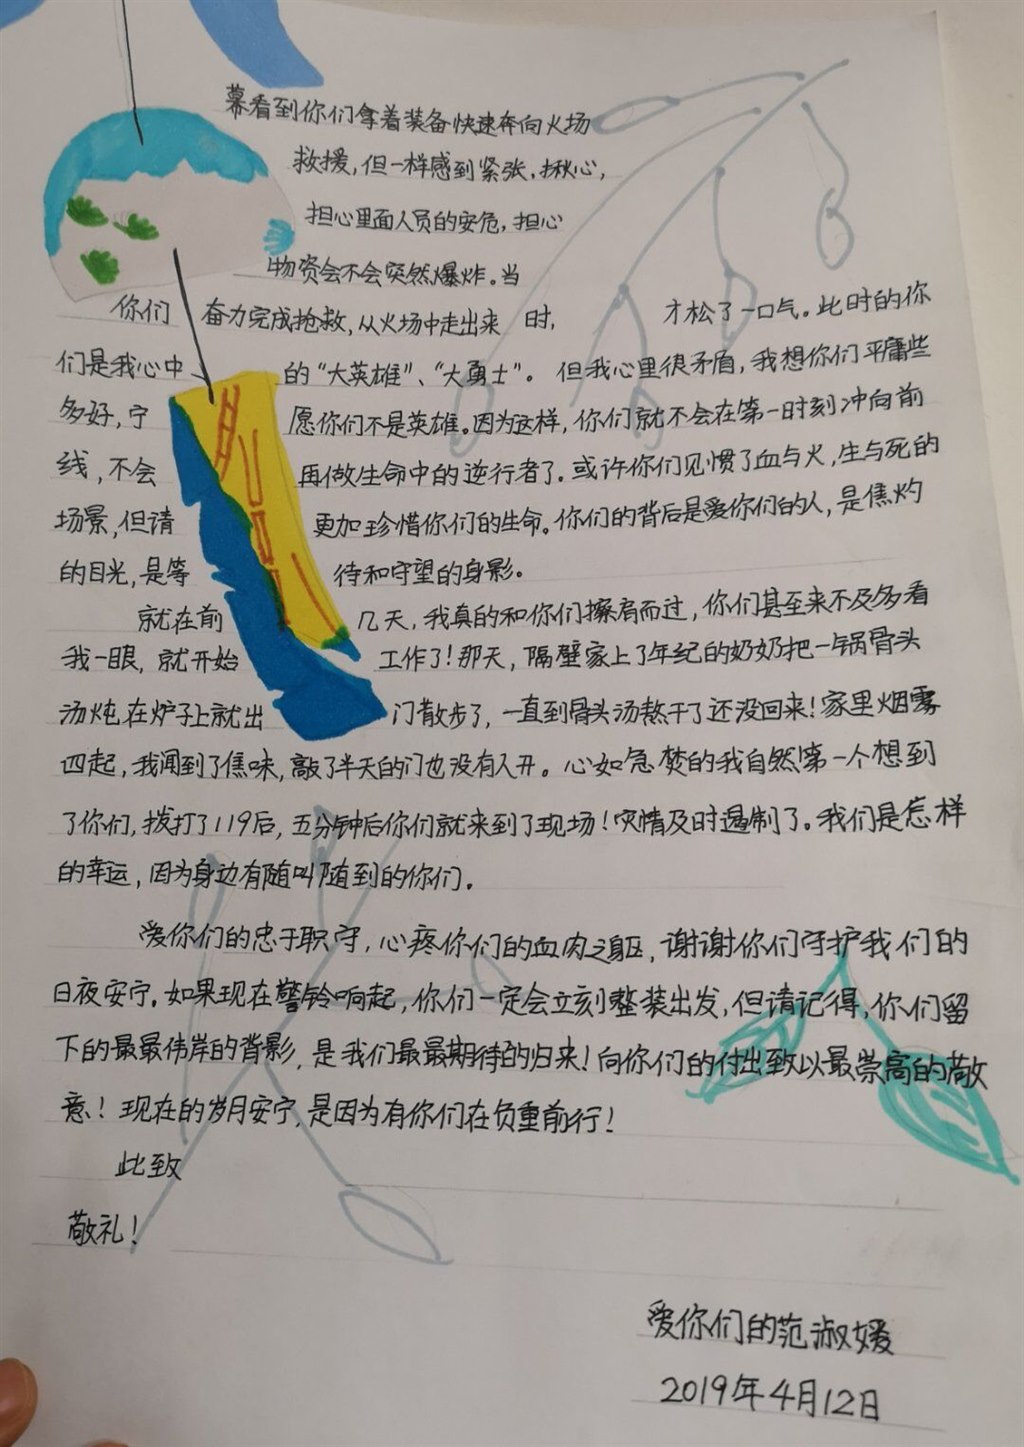 幕看到你们拿着装备快速奔向火场
救援，但一样感到紧张、揪心，
担心里面人员的安危，担心
物资会不会突然爆炸。当
你们奋力完成抢救，从火场中走出来时，才松了一口气。此时的你
们是我心中的“大英雄”、“大勇士”。但我心里很矛盾，我想你们平庸些
多好，宁愿你们不是英雄。因为这样，你们就不会在第一时刻冲向前
线，不会再做生命中的逆行者了。或许你们见惯了血与火，生与死的
场景，但请更加珍惜你们的生命。你们的背后是爱你们的人，是焦灼
的目光，是等待和守望的身影。
就在前几天，我真的和你们擦肩而过，你们甚至来不及多看
我一眼，就开始工作了！那天，隔壁家上了年纪的奶奶把一锅骨头
汤炖在炉子上就出门散步了，一直到骨头汤熬干了还没回来！家里烟雾
四起，我闻到了焦味，敲了半天的门也没有人开。心如急焚的我自然第一个想到
了你们，拨打了119后，五分钟后你们就来到了现场！灾情及时遏制了。我们是怎样
的幸运，因为身边有随叫随到的你们。
爱你们的忠于职守，心疼你们的血肉之躯，谢谢你们守护我们的
日夜安宁。如果现在警铃响起，你们一定会立刻整装出发，但请记得，你们留
下的最最伟岸的背影，是我们最最期待的归来！向你们的付出致以最崇高的敬
意！现在的岁月安宁，是因为有你们在负重前行！
此致
敬礼！
爱你们的范淑媛
2019年4月12日